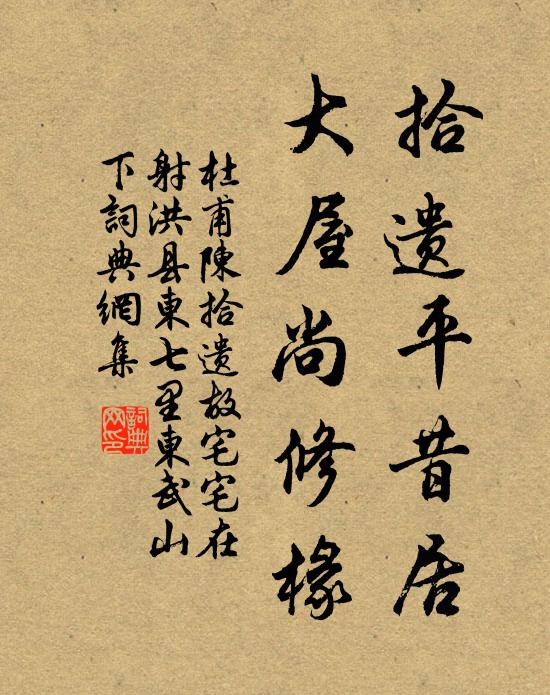 拾遗平昔居
大屋尚修椽
杜甫陳拾遗故宅宅在
射洪县東七里東武山
下詞典網集
詞典网印